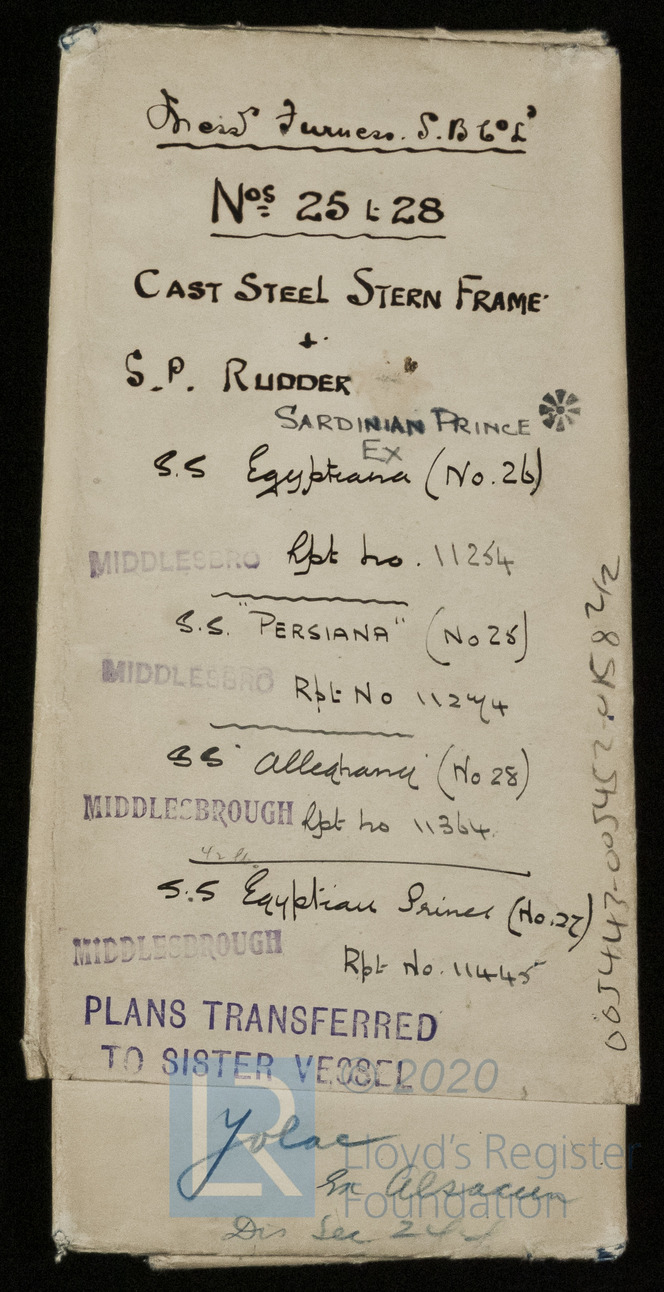 Mess<sup>rs</sup> Furness. S.B Co Ld
Nos 25 to 28
CAST STEEL STERN FRAME
+
S.P. RUDDER
SARDINIAN PRINCE
Ex
S.S Egyptiana (No.26)
MIDDLESBRO Rpt No. 11254
S.S. "PERSIANA" (No 25)
MIDDLESBRO Rpt No
SS Alleghany (No 28)
MIDDLESBROUGH Rpt No 11364.
S.S Egyptian Prince (No.27)
MIDDLESBROUGH Rpt No. 11445
PLANS TRANSFERRED
TO SISTER VESSEL
© 2020
LR
Lloyd's Register
Foundation
Yolac
Ex
Dis Sec